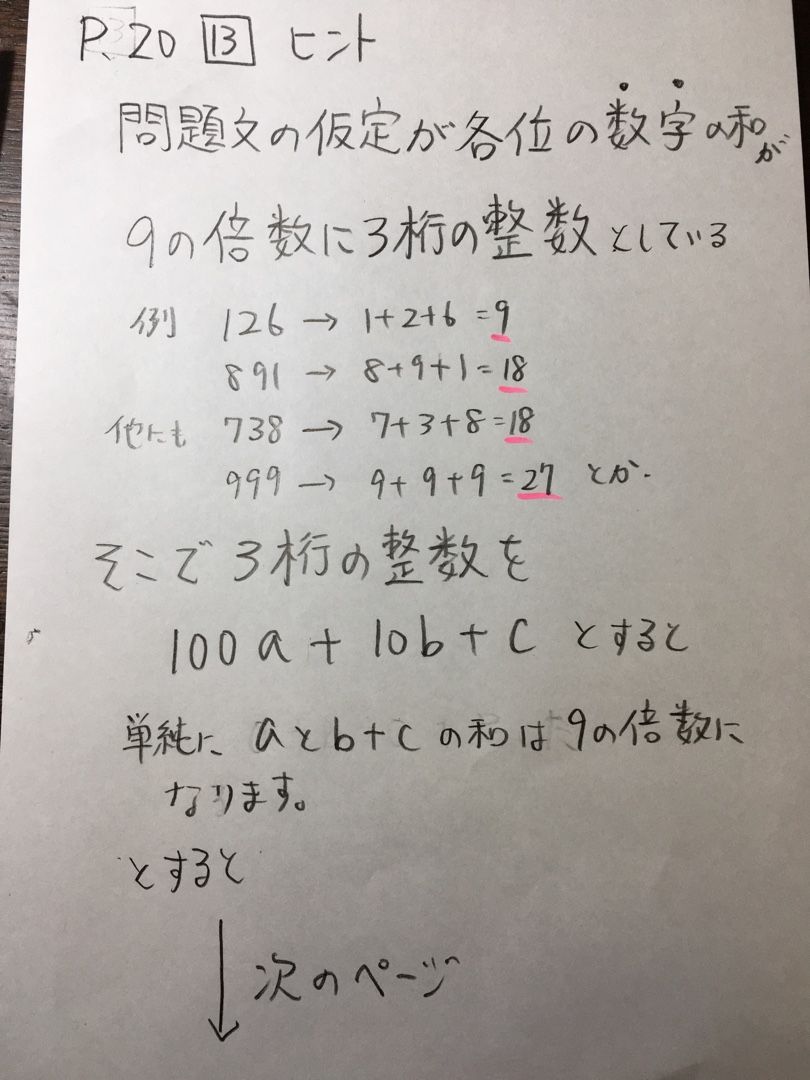 P.20 13 ヒント
問題文の仮定が各位の数字の和が
9の倍数に3桁の整数としている
例 126 → 1+2+6=9
891 → 8+9+1=18
他にも 738 → 7+3+8=18
999 → 9+9+9=27 とか.
そこで3桁の整数を
100a+10b+c とすると
単純に aとb+cの和は9の倍数に
なります。
とすると
↓ 次のページ